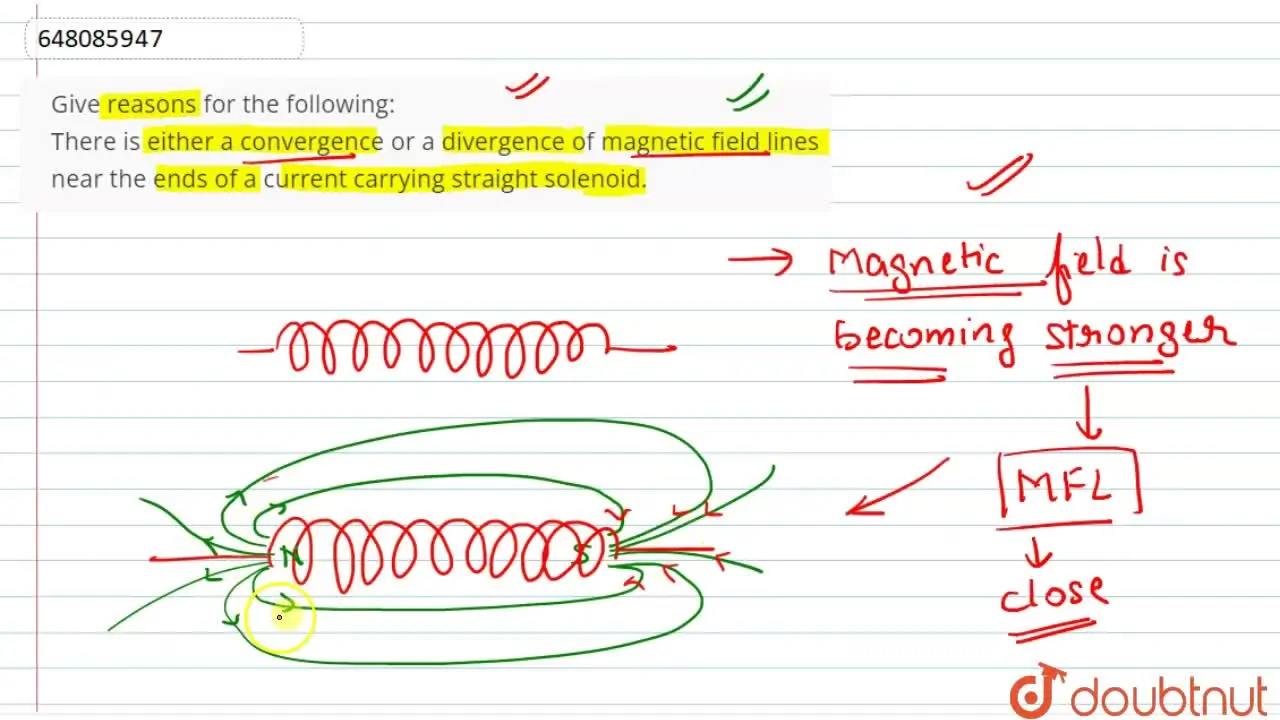 648085947
Give reasons for the following:
There is either a convergence or a divergence of magnetic field lines
near the ends of a current carrying straight solenoid.
→ Magnetic field is
becoming stronger
MFL
N S
close
doubtnut